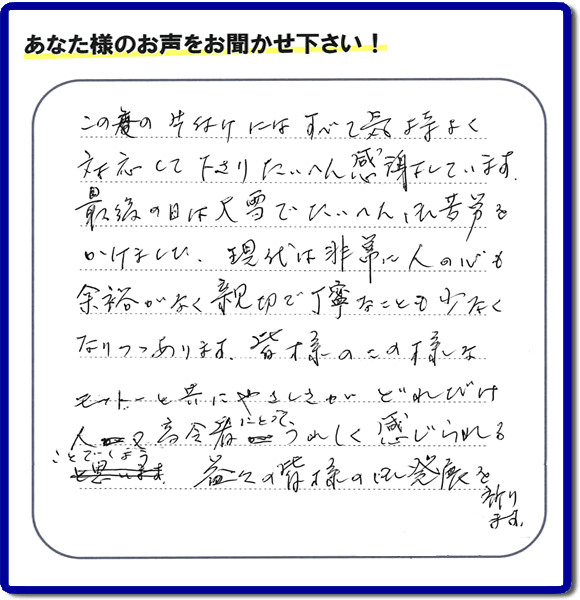 あなた様のお声をお聞かせ下さい！
この度の片付けにはすべて気持よく
対応して下さりたいへん感謝しています.
最後の日は大雪でたいへんご苦労を
かけました. 現代は非常に人の心も
余裕がなく親切で丁寧なことも少なく
なりつつあります. 皆様のこの様な
モットーと共にやさしさが どれだけ
人 又高令者にとってうれしく感じられる
ことでしょう
益々の皆様のご発展を
祈り
ます.